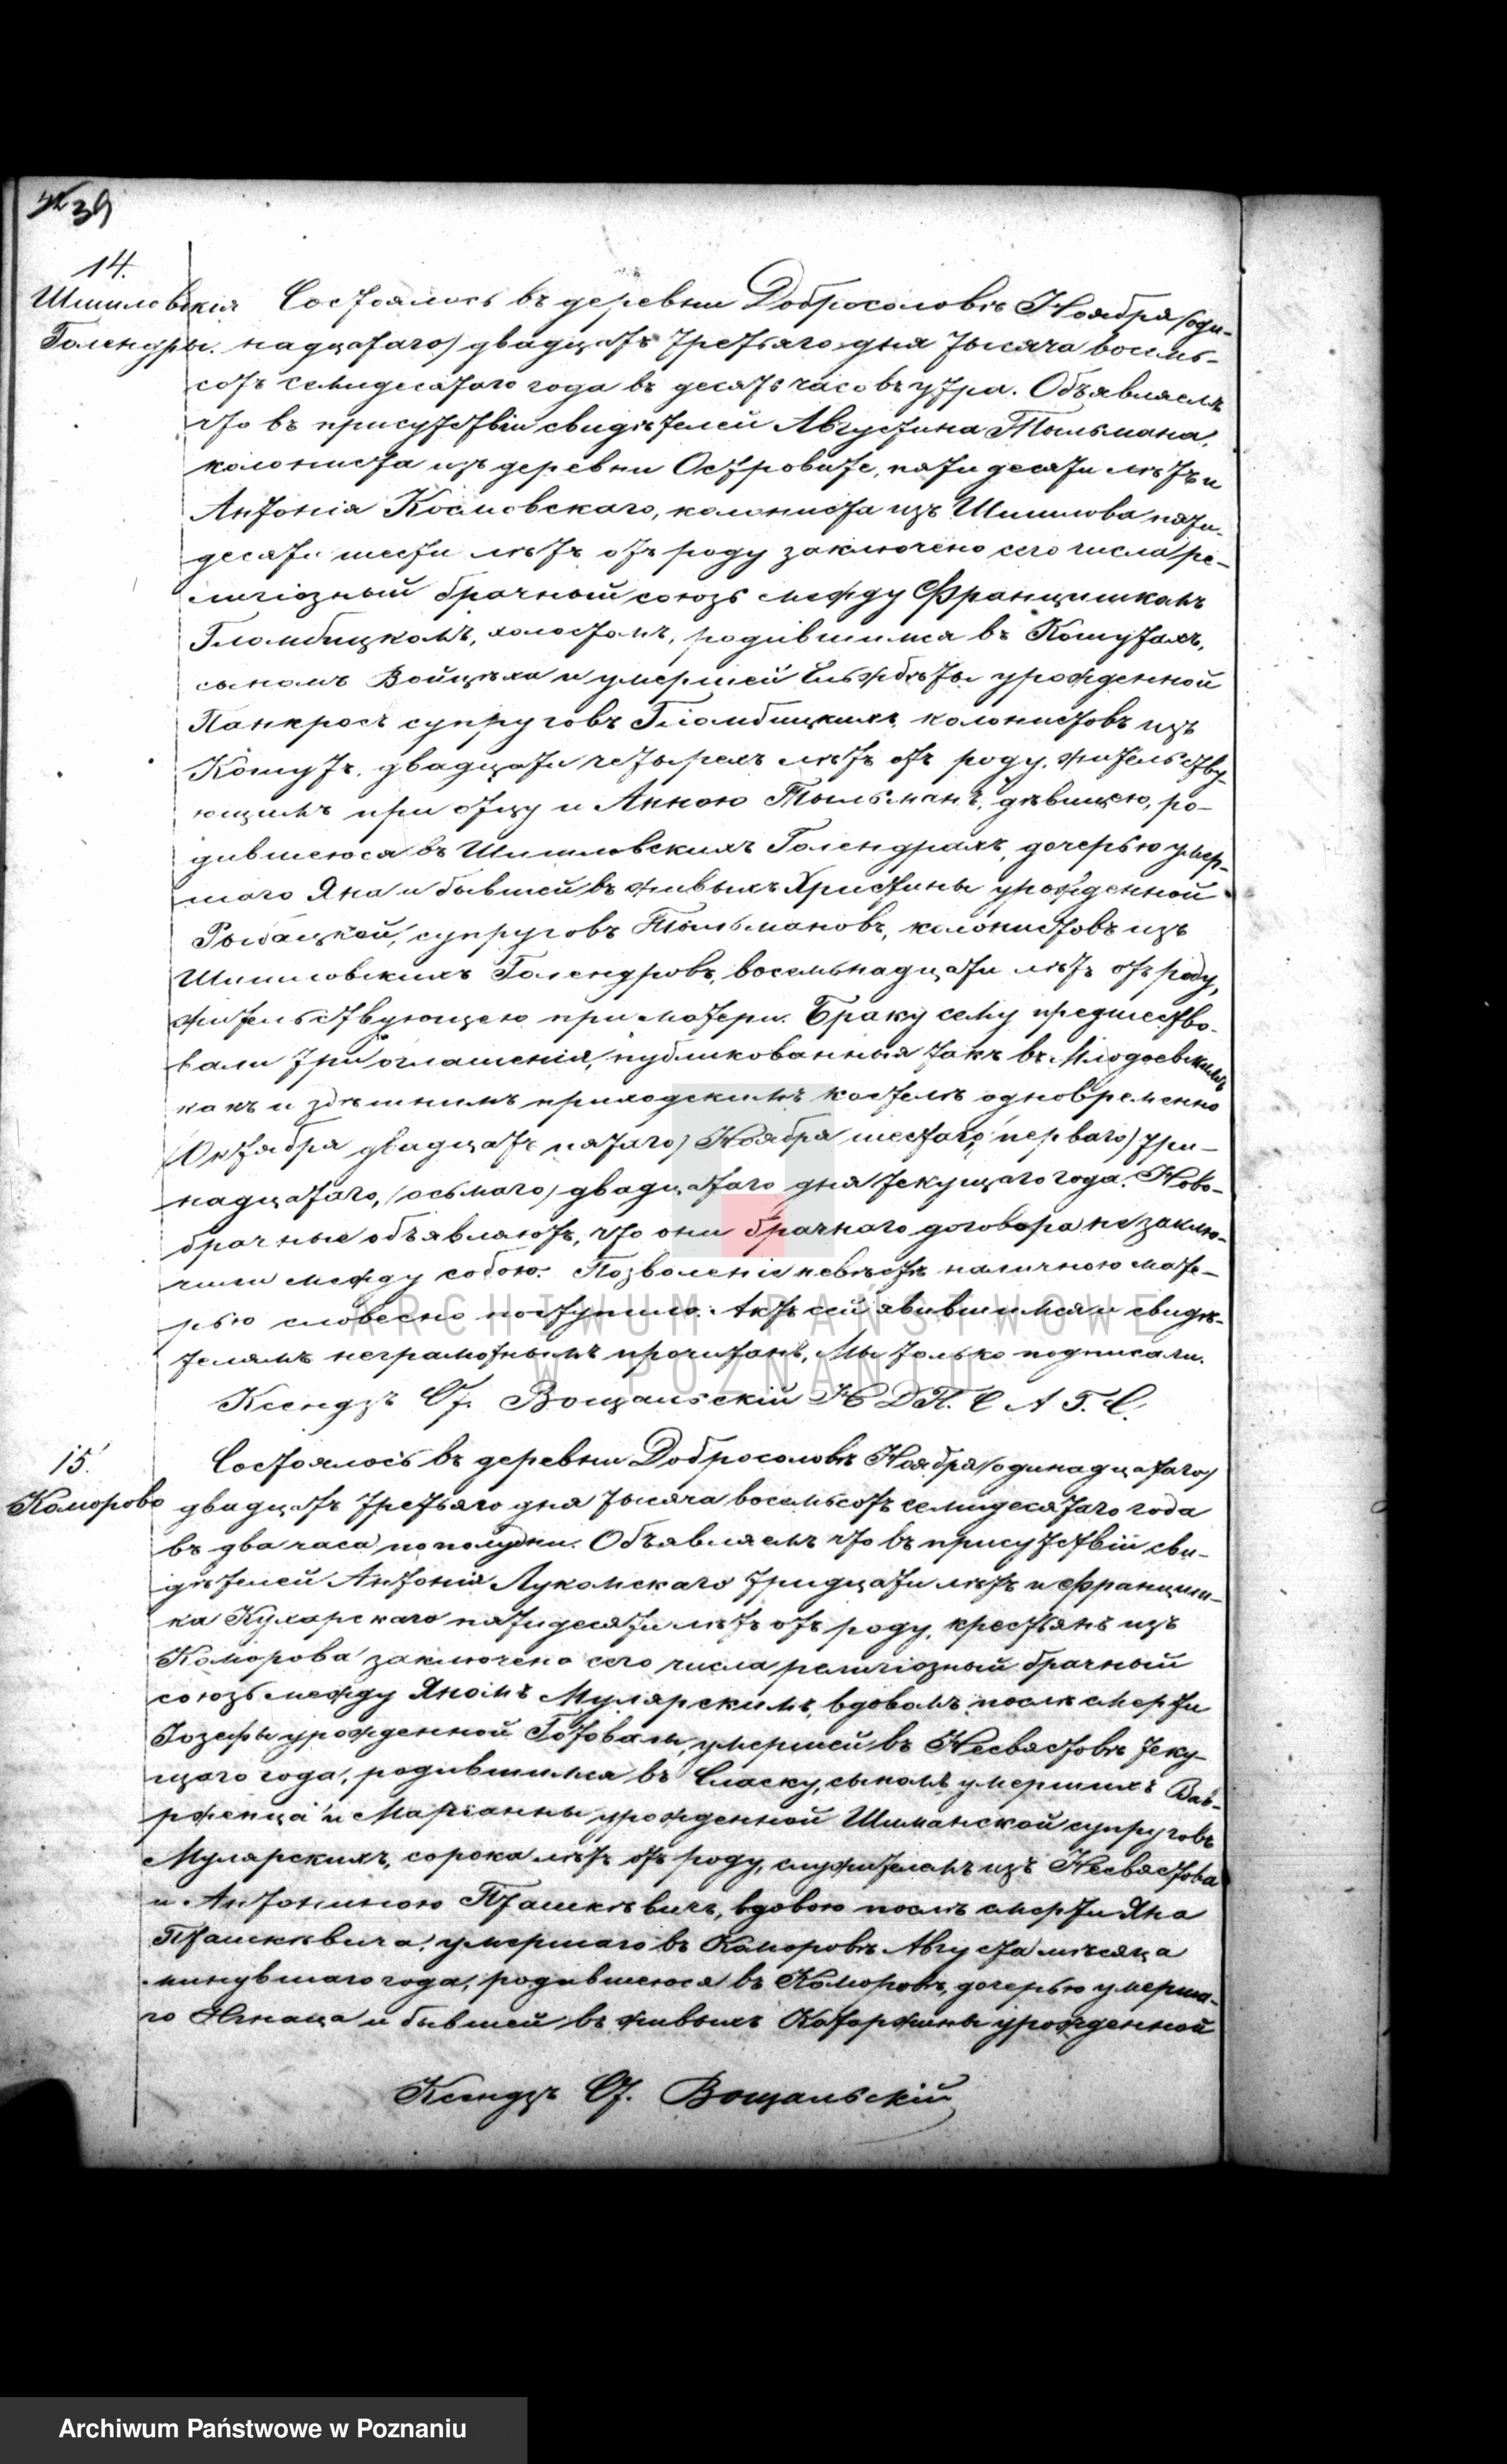 39
14.
Шишловскія
Голендры.
Состоялось въ деревни Добросоловѣ Ноября (оди-
надцатаго) двадцать третьяго дня тысяча восемь-
сотъ семидесятаго года въ десять часовъ утра. Объявляемъ
что въ присутствіи свидѣтелей Августина Тыльмана,
колониста изъ деревни Островите, пяти десяти лѣтъ и
Антонія Космовскаго, колониста изъ Шишлова пяти-
десяти шести лѣтъ отъ роду заключено сего числа ре-
лигіозный брачный союзъ между Францишкомъ
Гломбицкомъ, холостомъ, родившимся въ Кошутахъ,
сыномъ Войцѣха и умершей Ельжбѣты урожденной
Панкросъ супруговъ Гломбицкихъ колонистовъ изъ
Кошутъ, двадцати четырехъ лѣтъ отъ роду, жительству-
ющимъ при отцу и Анною Тыльманъ, дѣвицею, ро-
дившеюся въ Шишловскихъ Голендрахъ, дочерью умер-
шаго Яна и бывшей въ живыхъ Христины урожденной
Рыбацкой, супруговъ Тыльмановъ, колонистовъ изъ
Шишловскихъ Голендровъ, восемьнадцати лѣтъ отъ роду,
жительствующею при матери. Браку сему предшество-
вали три оглашенія, публикованныя такъ въ Млодоевскимъ
какъ и здѣшнимъ приходскимъ костелѣ одновременно
(Октября двадцать пятаго) Ноября шестаго, (перваго) три-
надцатаго, (осьмаго) двадцатаго дня текущаго года. Ново-
брачные объявляютъ, что они брачнаго договора не заклю-
чили между собою. Позволеніе невѣстѣ наличною мате-
рью словесно поступило. Актъ сей явившимся и свидѣ-
телямъ неграмотнымъ прочитанъ, Мы только подписали.
Ксендзъ Ст. Вощальскій Н. Д. П. С. А. Г. С.
15.
Коморово
Состоялось въ деревни Добросоловѣ Ноября (одинадцатаго)
двадцать третьяго дня тысяча восемьсотъ семидесятаго года
въ два часа пополудни. Объявляемъ что въ присутствіи сви-
дѣтелей Антонія Лукомскаго тридцати лѣтъ и Францишн-
ка Кухарскаго пятидесяти лѣтъ отъ роду, крестьянъ изъ
Коморова заключено сего числа религіозный брачный
союзъ между Яномъ Мулярскимъ, вдовомъ послѣ смерти
Іозефы урожденной Готовали, умершей въ Несвястовѣ теку-
щаго года, родившимся въ Сласку, сыномъ умершихъ Вав-
рженца и Маріанны урожденной Шиманской супруговъ
Мулярскихъ, сорока лѣтъ отъ роду, служителемъ изъ Несвястова
и Антониною Пташкѣвичъ, вдовою послѣ смерти Яна
Пташкѣвича, умершаго въ Коморовѣ Августа мѣсяца
минувшаго года, родившеюся въ Коморовѣ, дочерью умерша-
го Игнаца и бывшей въ живыхъ Катаржины урожденной
Ксендзъ Ст. Вощальскій
ARCHIWUM PAŃSTWOWE
W POZNANIU
Archiwum Państwowe w Poznaniu